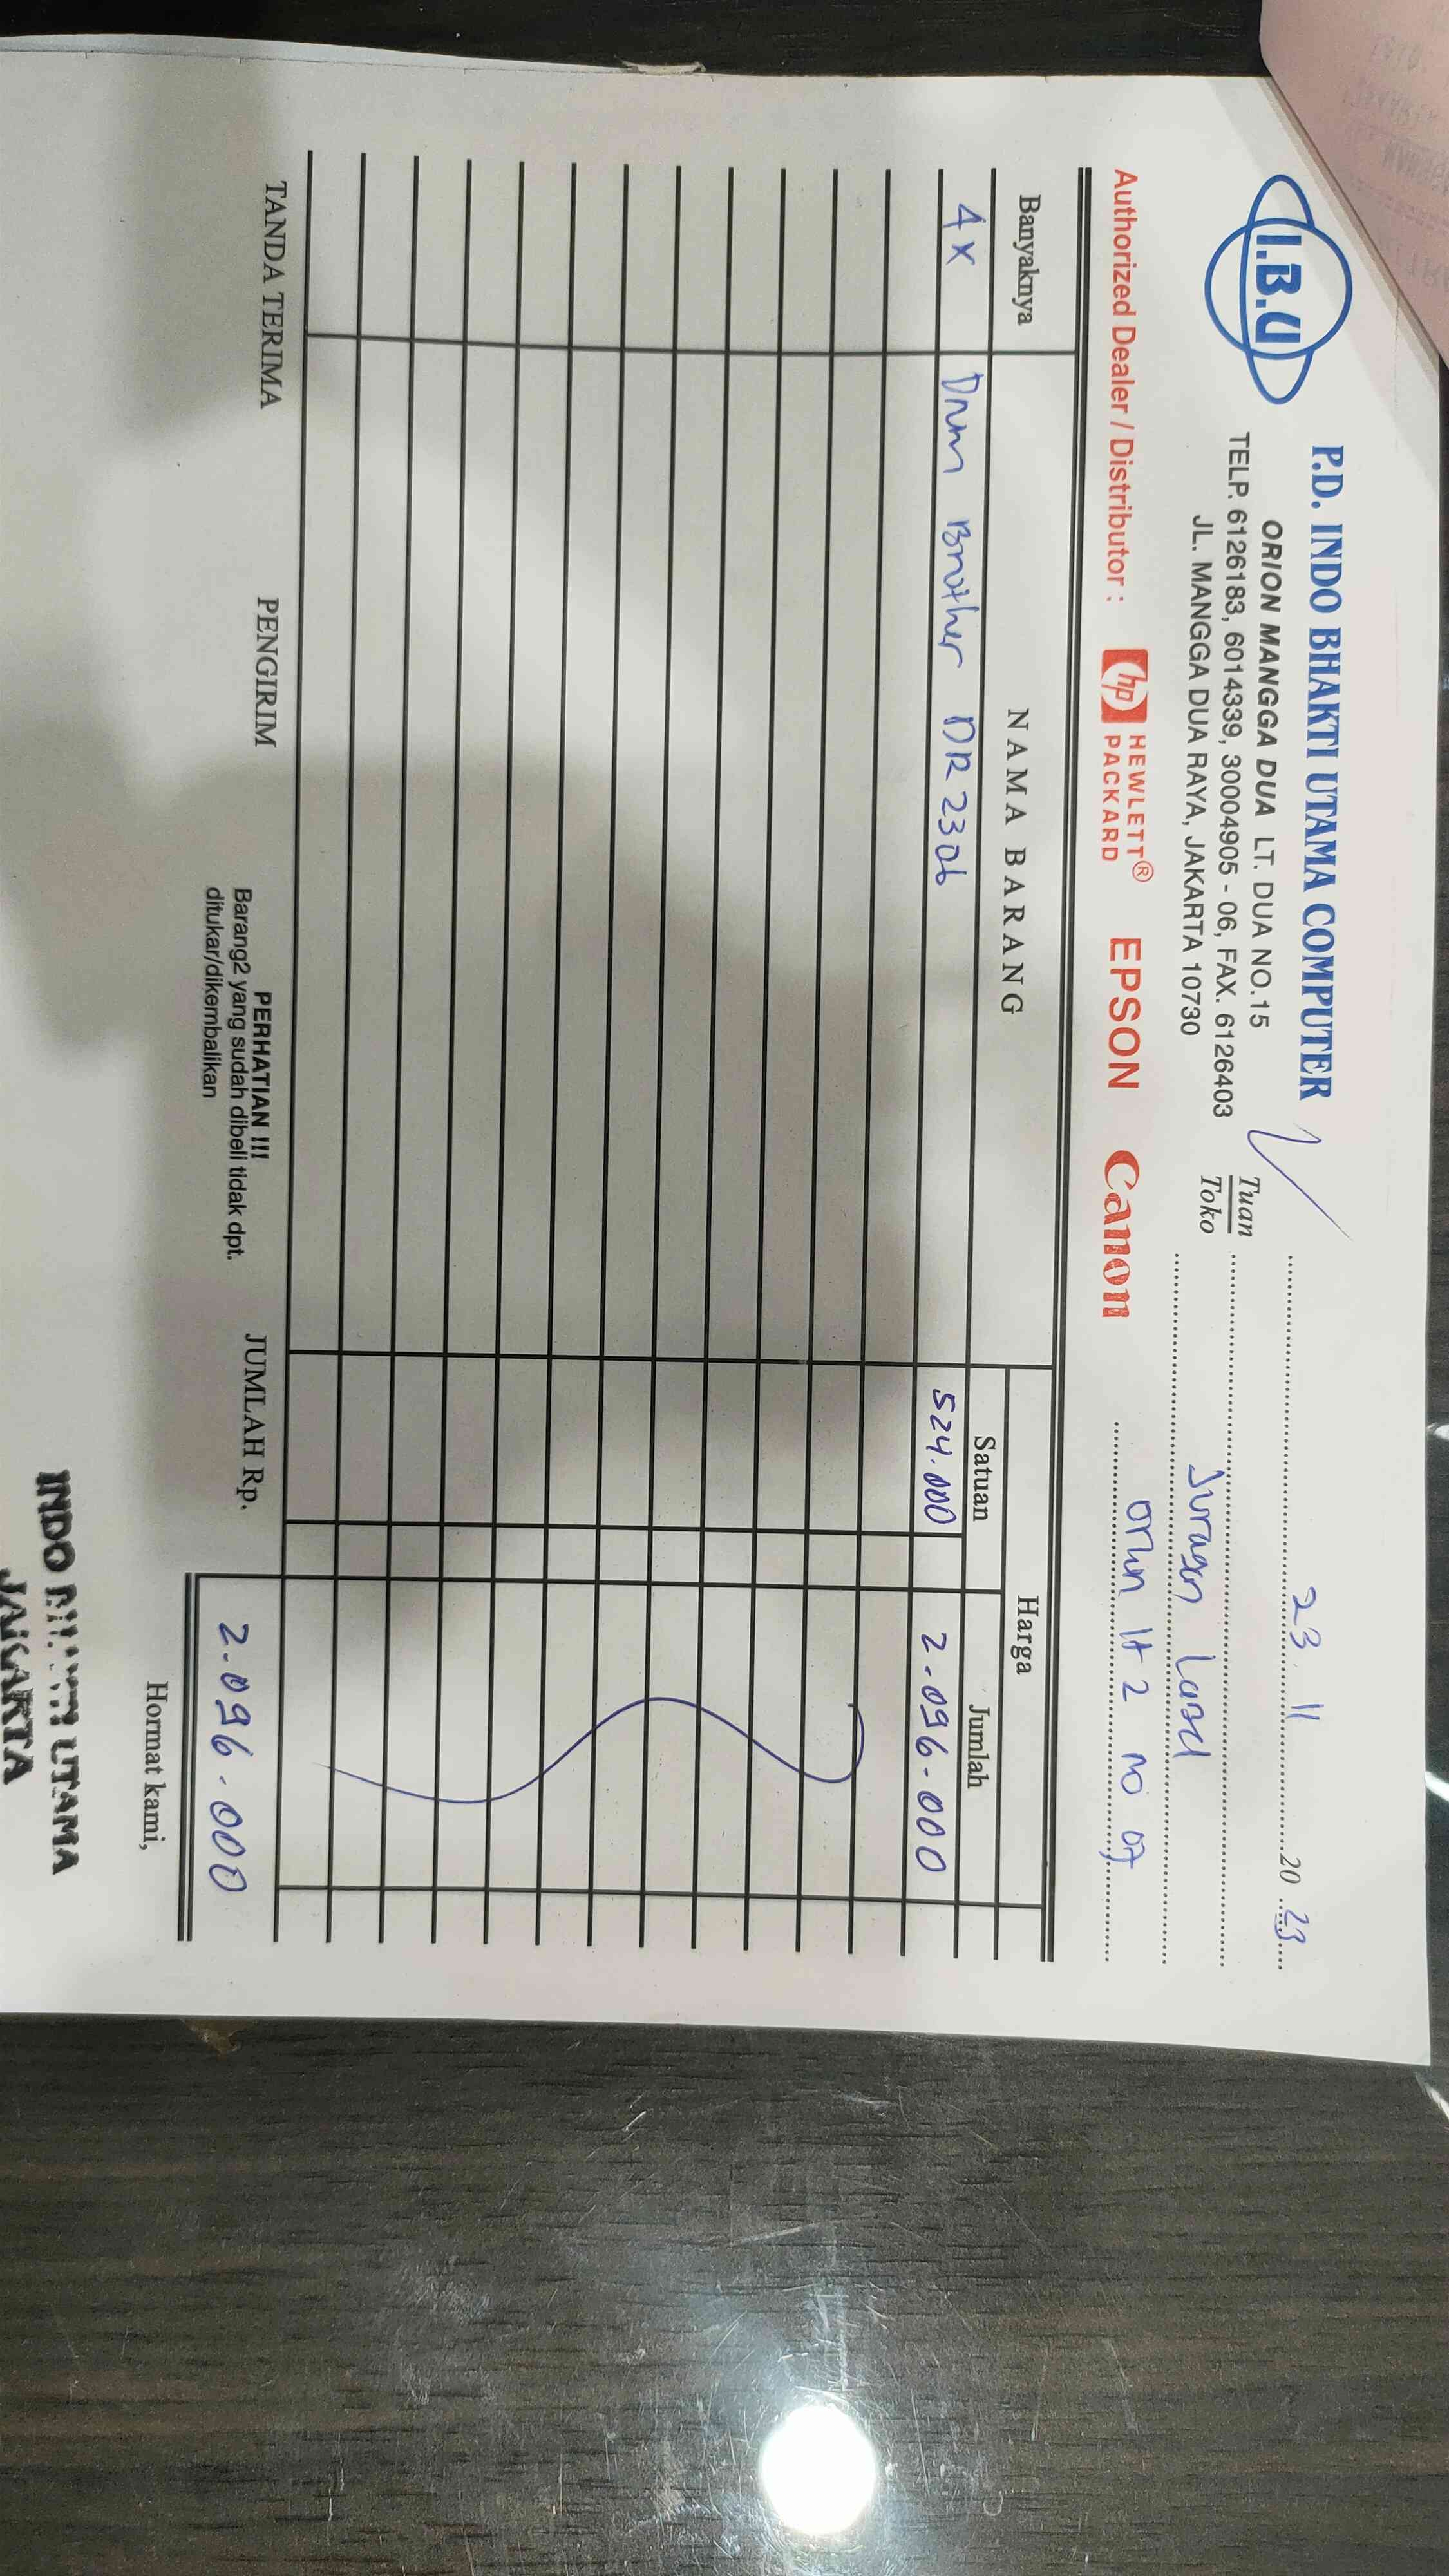 I.B.U
P.D. INDO BHAKTI UTAMA COMPUTER
ORION MANGGA DUA LT. DUA NO.15
TELP. 6126183, 6014339, 30004905 - 06, FAX. 6126403
JL. MANGGA DUA RAYA, JAKARTA 10730
23 11 20 23
Tuan
Toko
Juragan Laser
Orion lt 2 no 07
Authorized Dealer / Distributor : hp HEWLETT® PACKARD EPSON Canon
Banyaknya NAMA BARANG Harga
Satuan Jumlah
4 x Drum Brother DR 2306 524.000 2.096.000
TANDA TERIMA PENGIRIM JUMLAH Rp. 2.096.000
PERHATIAN !!!
Barang2 yang sudah dibeli tidak dpt.
ditukar/dikembalikan
Hormat kami,
INDO BHAKTI UTAMA
JAKARTA